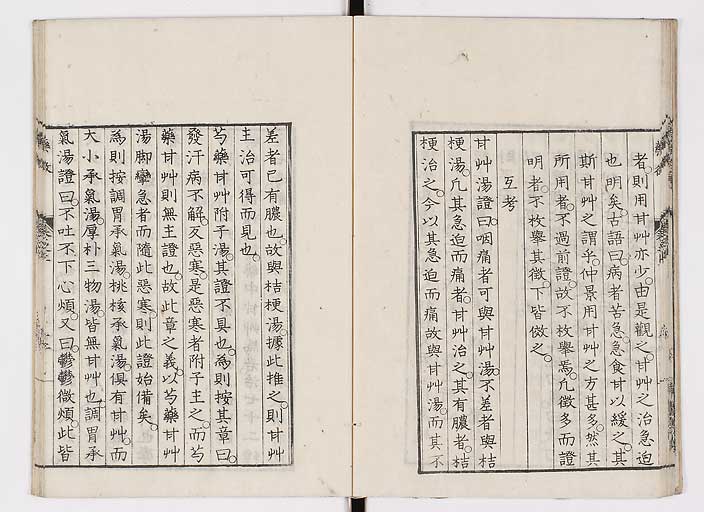 者則用甘艸亦少由是觀之甘艸之治急迫
也明矣古語曰病者苦急急食甘以緩之其
斯甘艸之謂乎仲景用甘艸之方甚多然其
所用者不過前證故不枚舉焉凢徵多而證
明者不枚舉其徵下皆倣之
互考
甘艸湯證曰咽痛者可與甘艸湯不差者與桔
梗湯凢其急迫而痛者甘艸治之其有膿者桔
梗治之今以其急迫而痛故與甘艸湯而其不
差者已有膿也故與桔梗湯據此推之則甘艸
主治可得而見也
芍藥甘艸附子湯其證不具也為則按其章曰
發汗病不解反惡寒是惡寒者附子主之而芍
藥甘艸則無主證也故此章之義以芍藥甘艸
湯脚攣急者而隨此惡寒則此證始備矣
為則按調胃承氣湯桃核承氣湯俱有甘艸而
大小承氣湯厚朴三物湯皆無甘艸也調胃承
氣湯證曰不吐不下心煩又曰鬱鬱微煩此皆